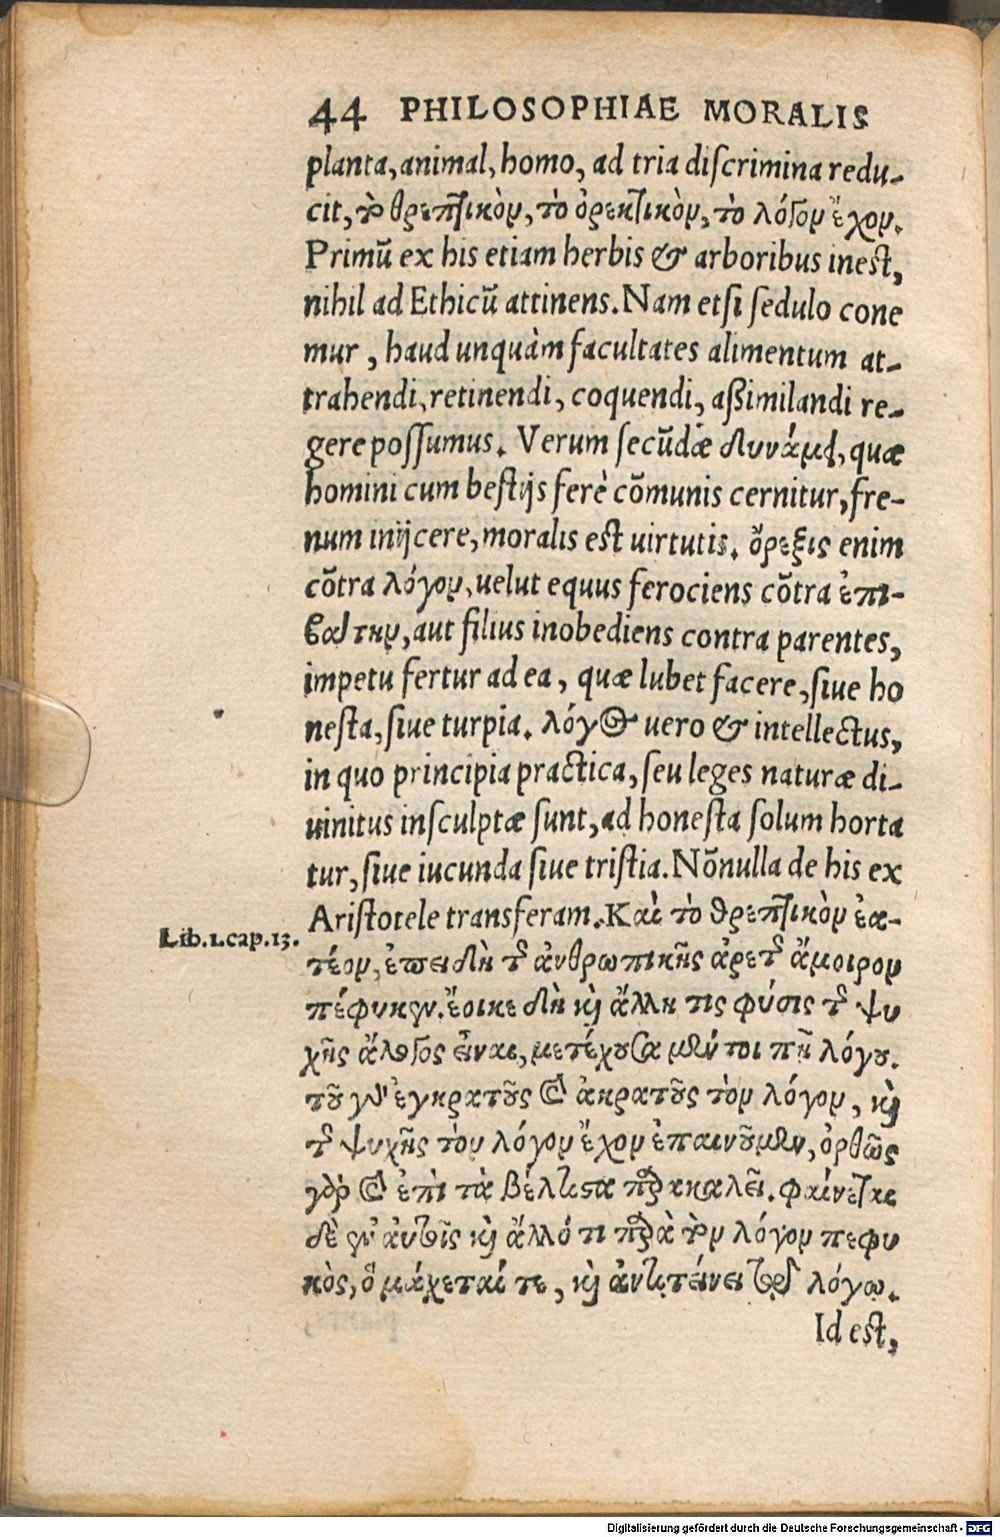 44 PHILOSOPHIAE MORALIS
planta, animal, homo, ad tria discrimina redu-
cit, τὸ θρεπτικὸν, τὸ ὀρεκτικὸν, τὸ λόγον ἔχον.
Primũ ex his etiam herbis & arboribus inest,
nihil ad Ethicũ attinens. Nam etsi sedulo cone
mur, haud unquàm facultates alimentum at-
trahendi, retinendi, coquendi, aßimilandi re-
gere possumus. Verum secũdæ δυνάμει, quæ
homini cum bestijs ferè cõmunis cernitur, fre-
num inijcere, moralis est uirtutis. ὄρεξις enim
cõtra λόγον, uelut equus ferociens cõtra ἐπι-
βάτην, aut filius inobediens contra parentes,
impetu fertur ad ea, quæ lubet facere, siue ho
nesta, siue turpia. λόγος uero & intellectus,
in quo principia practica, seu leges naturæ di-
uinitus insculptæ sunt, ad honesta solum horta
tur, siue iucunda siue tristia. Nõnulla de his ex
Aristotele transferam. Καὶ τὸ θρεπτικὸν ἐα-
Lib.1.cap.13.
τέον, ἐπειδὴ τῆς ἀνθρωπικῆς ἀρετῆς ἄμοιρον
πέφυκεν. ἔοικε δὴ καὶ ἄλλη τις φύσις τῆς ψυ
χῆς ἄλογος εἶναι, μετέχουσα μέντοι πῆ λόγου.
τοῦ γὰρ ἐγκρατοῦς καὶ ἀκρατοῦς τὸν λόγον, καὶ
τῆς ψυχῆς τὸν λόγον ἔχον ἐπαινοῦμεν, ὀρθῶς
γὰρ καὶ ἐπὶ τὰ βέλτιστα παρακαλεῖ. φαίνεται
δὲ ἐν αὐτοῖς καὶ ἄλλό τι παρὰ τὸν λόγον πεφυ
κὸς, ὃ μάχεταί τε, καὶ ἀντιτείνει τῷ λόγῳ.
Id est,
Digitalisierung gefördert durch die Deutsche Forschungsgemeinschaft - DFG